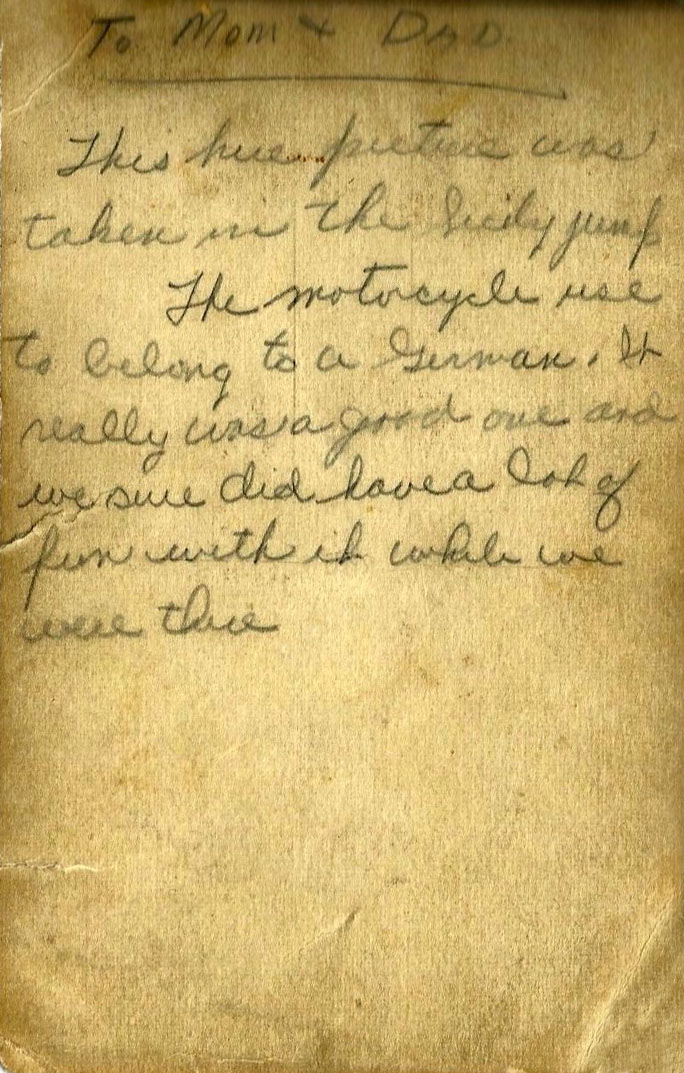 To Mom + DAD.
This here picture was
taken in the Sicily jump
The motorcycle use
to belong to a German. It
really was a good one and
we sure did have a lot of
fun with it while we
were there